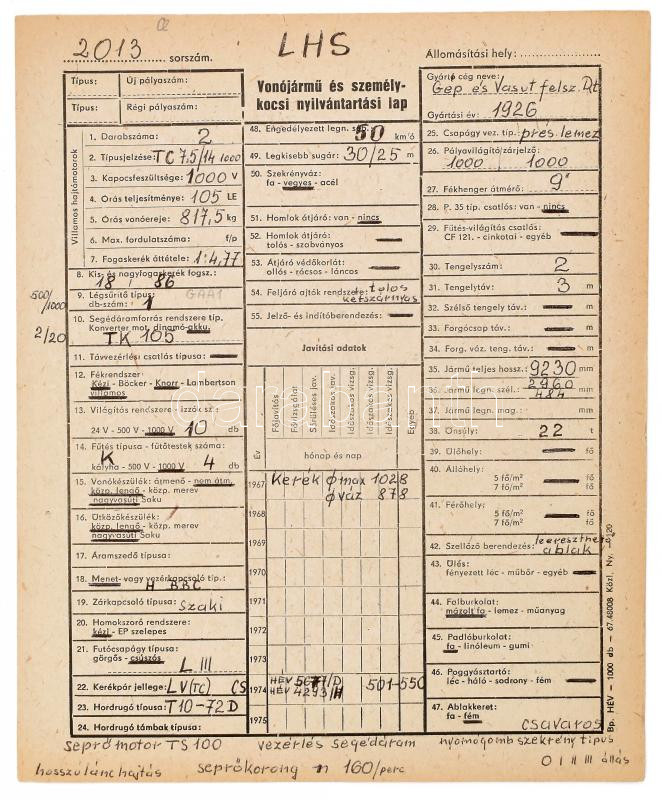 2013 sorszám.
LHS
Állomásítási hely:
Típus:
Új pályaszám:
Típus:
Régi pályaszám:
Vonójármű és személy-
kocsi nyilvántartási lap
Gyártó cég neve:
Gép és Vasut felsz. Rt
Gyártási év: 1926
Villamos hajtómotorok
1. Darabszáma: 2
2. Típusjelzése: TC 7.5/14 1000
3. Kapocsfeszültsége: 1000 V
4. Órás teljesítménye: 105 LE
5. Órás vonóereje: 817,5 kg
6. Max. fordulatszáma: f/p
7. Fogaskerék áttétele: 1:4,77
8. Kis- és nagyfogaskerék fogsz.:
18 / 86
9. Légsűrítő típus: GAA1
db-szám: 1
500/1000
10. Segédáramforrás rendszere típ.
Konverter mot. dinamó-akku.
TK 105
2/20
11. Távvezérlési csatlós típusa:
12. Fékrendszer:
Kézi - Böcker - Knorr - Lambertson
villamos
13. Világítás rendszere - izzók sz.:
24 V - 500 V - 1000 V 10 db
14. Fűtés típusa - fűtőtestek száma:
K
kályha - 500 V - 1000 V 4 db
15. Vonókészülék: átmenő - nem átm.
közp. lengő - közp. merev
nagyvasúti Saku
16. Ütközőkészülék:
közp. lengő - közp. merev
nagyvasúti Saku
17. Áramszedő típusa:
18. Menet- vagy vezérkapcsoló típ.:
H BBC
19. Zárkapcsoló típusa:
szaki
20. Homokszoró rendszere:
kézi - EP szelepes
21. Futócsapágy típusa:
görgős - csúszós
L III
22. Kerékpár jellege: LV(TC) CS
23. Hordrugó típusa: T10-72 D
24. Hordrugó támbak típusa:
48. Engedélyezett legn. seb.:
50 km/ó
49. Legkisebb sugár: 30/25 m
50. Szekrényváz:
fa - vegyes - acél
51. Homlok átjáró: van - nincs
52. Homlok átjáró:
tolós - szabványos
53. Átjáró védőkorlát:
ollós - rácsos - láncos
54. Feljáró ajtók rendszere: tolos
kétszárnyas
55. Jelző- és indítóberendezés:
Javítási adatok
Év
Főjavítás
Fővizsgálat
Sérüléses jav.
Időszakos jav.
Időszakos vizsg.
Időszakos vizsg.
Egyéb
hónap és nap
1967 Kerék ϕ max 1028
ϕ váz 878
1968
1969
1970
1971
1972
1973
HÉV 5677/D
1974 HÉV 4293/H 501-550
1975
25. Csapágy vez. típ.: prés. lemez
26. Pályavilágító/zárjelző:
1000 1000
27. Fékhenger átmérő: 9"
28. P. 35 típ. csatlós: van - nincs
29. Fűtés-világítás csatlós:
CF 121. - cinkotai - egyéb
30. Tengelyszám: 2
31. Tengelytáv: 3 m
32. Szélső tengely táv.: m
33. Forgócsap táv.: m
34. Forg. váz. teng. táv.: m
35. Jármű teljes hossz.: 9230 mm
36. Jármű legn. szél.: 2960 mm
484
37. Jármű legn. mag.: mm
38. Önsúly: 22 t
39. Ülőhely: fő
40. Állóhely:
5 fő/m² fő
7 fő/m²
41. Férőhely:
5 fő/m² fő
7 fő/m²
42. Szellőző berendezés: leereszthető
ablak
43. Ülés:
fényezett léc - műbőr - egyéb
44. Falburkolat:
mázolt fa - lemez - műanyag
45. Padlóburkolat:
fa - linóleum - gumi
46. Poggyásztartó:
léc - háló - sodrony - fém
47. Ablakkeret:
fa - fém
csavaros
Bp. HÉV - 1000 db - 67.48008 Közl. Ny.
seprőmotor TS 100 vezérlés segédáram nyomógomb szekrény típus
hosszú lánchajtás seprőkorong n 160/perc 0 I II III állás
darabanth